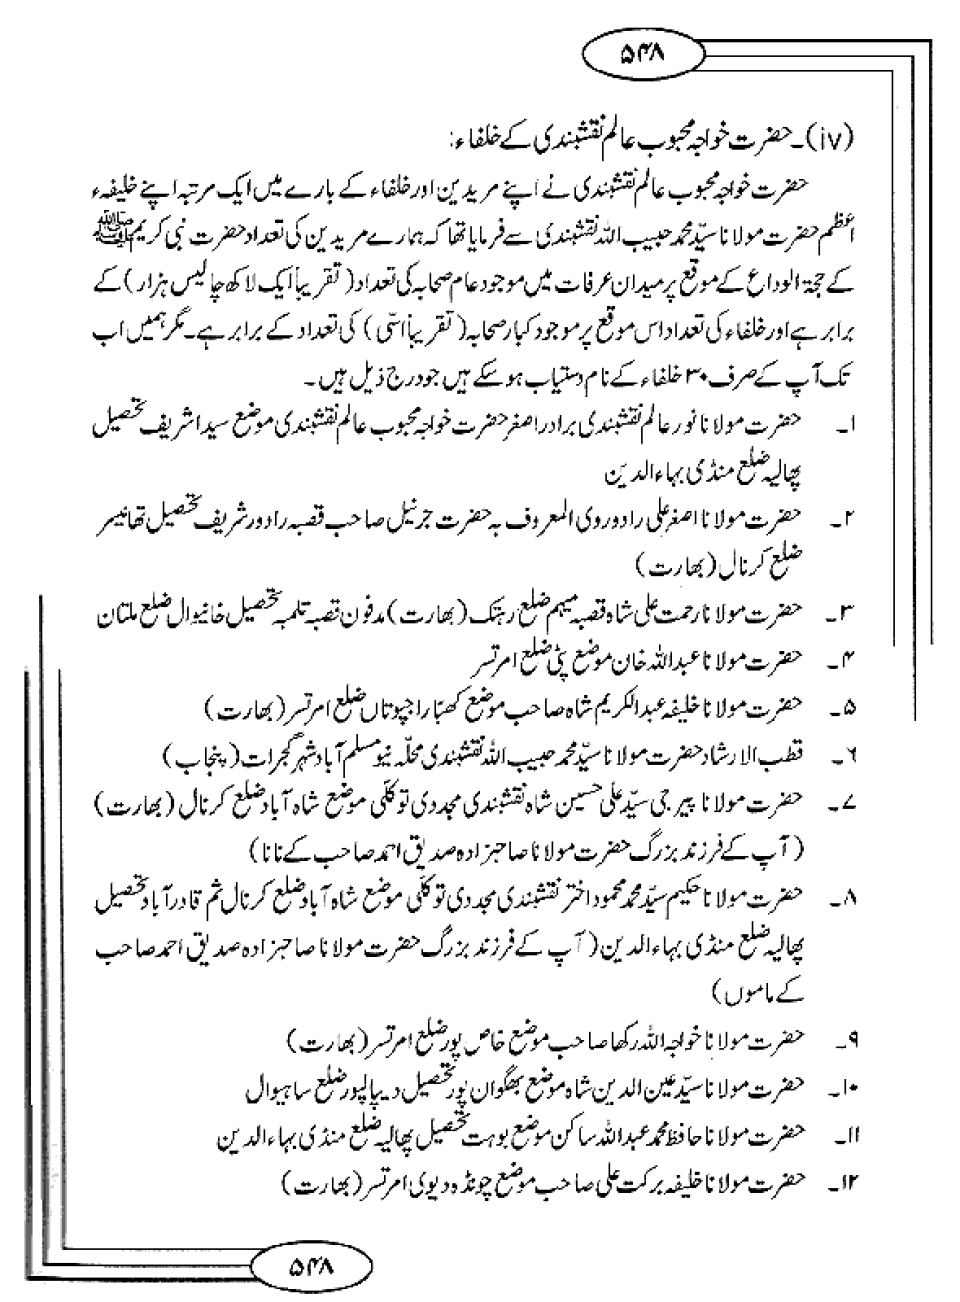 ۵۴۸
(iv)۔ حضرت خواجہ محبوب عالم نقشبندی کے خلفاء:
حضرت خواجہ محبوب عالم نقشبندی نے اپنے مریدین اور خلفاء کے بارے میں ایک مرتبہ اپنے خلیفہء
اعظم حضرت مولانا سیّد محمد حبیب اللہ نقشبندی سے فرمایا تھا کہ ہمارے مریدین کی تعداد حضرت نبی کریم ﷺ
کے حجۃ الوداع کے موقع پر میدان عرفات میں موجود عام صحابہ کی تعداد (تقریباً ایک لاکھ چالیس ہزار) کے
برابر ہے اور خلفاء کی تعداد اس موقع پر موجود کبار صحابہ (تقریباً اسّی) کی تعداد کے برابر ہے۔ مگر ہمیں اب
تک آپ کے صرف ۳۰ خلفاء کے نام دستیاب ہو سکے ہیں جو درج ذیل ہیں۔
۱۔ حضرت مولانا نور عالم نقشبندی برادر اصغر حضرت خواجہ محبوب عالم نقشبندی موضع سیدا شریف تحصیل
پھالیہ ضلع منڈی بہاءالدین
۲۔ حضرت مولانا اصغر علی رادوروی المعروف بہ حضرت جرنیل صاحب قصبہ رادور شریف تحصیل تھانیسر
ضلع کرنال (بھارت)
۳۔ حضرت مولانا رحمت علی شاہ قصبہ میہم ضلع رہتک (بھارت) مدفون قصبہ تلمبہ تحصیل خانیوال ضلع ملتان
۴۔ حضرت مولانا عبداللہ خان موضع پٹی ضلع امرتسر
۵۔ حضرت مولانا خلیفہ عبدالکریم شاہ صاحب موضع کھبا راجپوتاں ضلع امرتسر (بھارت)
۶۔ قطب الارشاد حضرت مولانا سیّد محمد حبیب اللہ نقشبندی محلّہ نیو مسلم آباد شہر گجرات (پنجاب)
۷۔ حضرت مولانا پیر جی سیّد علی حسین شاہ نقشبندی مجددی توکلّی موضع شاہ آباد ضلع کرنال (بھارت)
(آپ کے فرزند بزرگ حضرت مولانا صاحبزادہ صدیق احمد صاحب کے نانا)
۸۔ حضرت مولانا حکیم سیّد محمد محمود اختر نقشبندی مجددی توکلّی موضع شاہ آباد ضلع کرنال ثم قادر آباد تحصیل
پھالیہ ضلع منڈی بہاءالدین (آپ کے فرزند بزرگ حضرت مولانا صاحبزادہ صدیق احمد صاحب
کے ماموں)
۹۔ حضرت مولانا خواجہ اللہ رکھا صاحب موضع خاص پور ضلع امرتسر (بھارت)
۱۰۔ حضرت مولانا سیّد عین الدین شاہ موضع بھگوان پور تحصیل دیپالپور ضلع ساہیوال
۱۱۔ حضرت مولانا حافظ محمد عبداللہ ساکن موضع بوہت تحصیل پھالیہ ضلع منڈی بہاءالدین
۱۲۔ حضرت مولانا خلیفہ برکت علی صاحب موضع چونڈہ دیوی امرتسر (بھارت)
۵۴۸